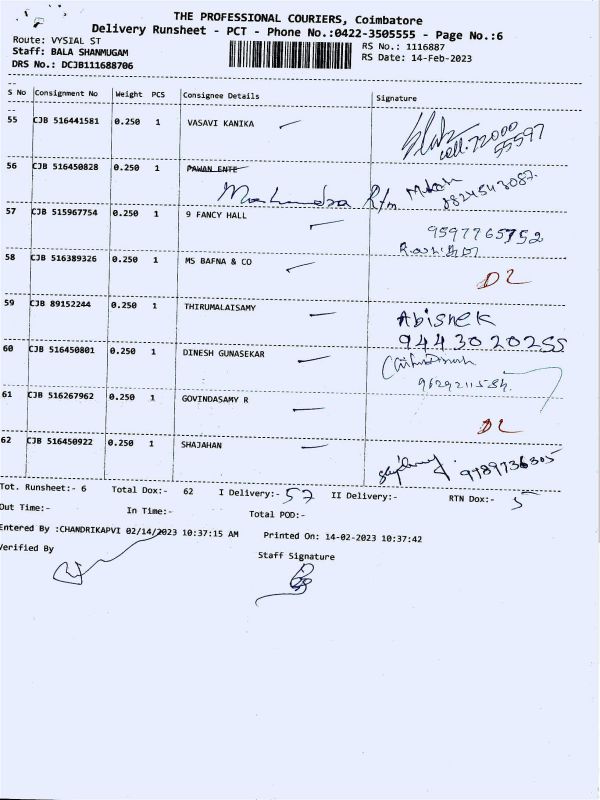 THE PROFESSIONAL COURIERS, Coimbatore
Delivery Runsheet - PCT - Phone No.:0422-3505555 - Page No.:6
Route: VYSIAL ST
RS No.: 1116887
Staff: BALA SHANMUGAM
RS Date: 14-Feb-2023
DRS No.: DCJB111688706
S No Consignment No Weight PCS Consignee Details Signature
55 CJB 516441581 0.250 1 VASAVI KANIKA
cell: 72000
55597
56 CJB 516450828 0.250 1 PAWAN ENTE
Mahendra
9824543087
57 CJB 515967754 0.250 1 9 FANCY HALL
9597765752
58 CJB 516389326 0.250 1 MS BAFNA & CO
DL
59 CJB 89152244 0.250 1 THIRUMALAISAMY
Abishek
9443020255
60 CJB 516450801 0.250 1 DINESH GUNASEKAR
61 CJB 516267962 0.250 1 GOVINDASAMY R
DL
62 CJB 516450922 0.250 1 SHAJAHAN
9989736305
Tot. Runsheet:- 6 Total Dox:- 62 I Delivery:- 57 II Delivery:- RTN Dox:- 5
Out Time:- In Time:- Total POD:-
Entered By :CHANDRIKAPVI 02/14/2023 10:37:15 AM Printed On: 14-02-2023 10:37:42
Verified By
Staff Signature